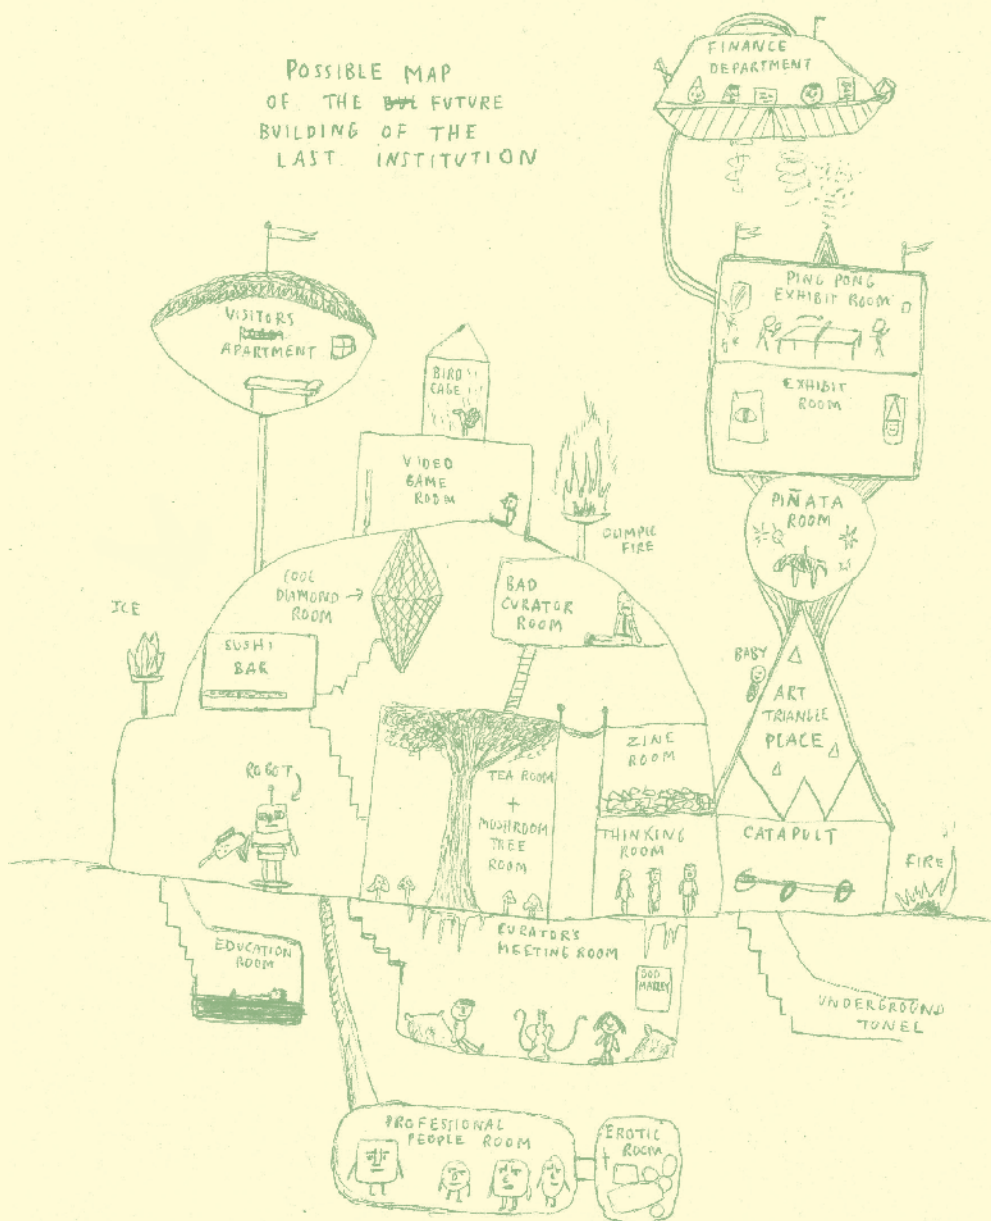 POSSIBLE MAP
OF THE BUI FUTURE
BUILDING OF THE
LAST INSTITUTION
FINANCE
DEPARTMENT
VISITORS
ROOM
APARTMENT
PING PONG
EXHIBIT ROOM
EXHIBIT
ROOM
BIRD
CAGE
VIDEO
GAME
ROOM
PIÑATA
ROOM
OLIMPIC
FIRE
COOL
DIAMOND
ROOM
BAD
CURATOR
ROOM
ICE
SUSHI
BAR
BABY
ART
TRIANGLE
PLACE
ZINE
ROOM
ROBOT
TEA ROOM
+
MUSHROOM
TREE
ROOM
THINKING
ROOM
CATAPULT
FIRE
EDUCATION
ROOM
CURATOR'S
MEETING ROOM
BOB
MARLEY
UNDERGROUND
TUNEL
PROFESSIONAL
PEOPLE ROOM
EROTIC
ROOM